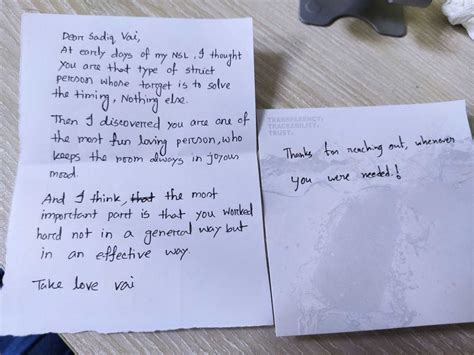 Dear Sadiq Vai,
At early days of my NSL, I thought
you are that type of strict
person whose target is to solve
the timing, Nothing else.
Then I discovered you are one of
the most fun loving person, who
keeps the room always in joyous
mood.
And I think, that the most
important part is that you worked
hard not in a general way but
in an effective way.
Take love vai
TRANSPARENCY.
TRACEABILITY.
TRUST.
Thanks for reaching out, whenever
you were needed!